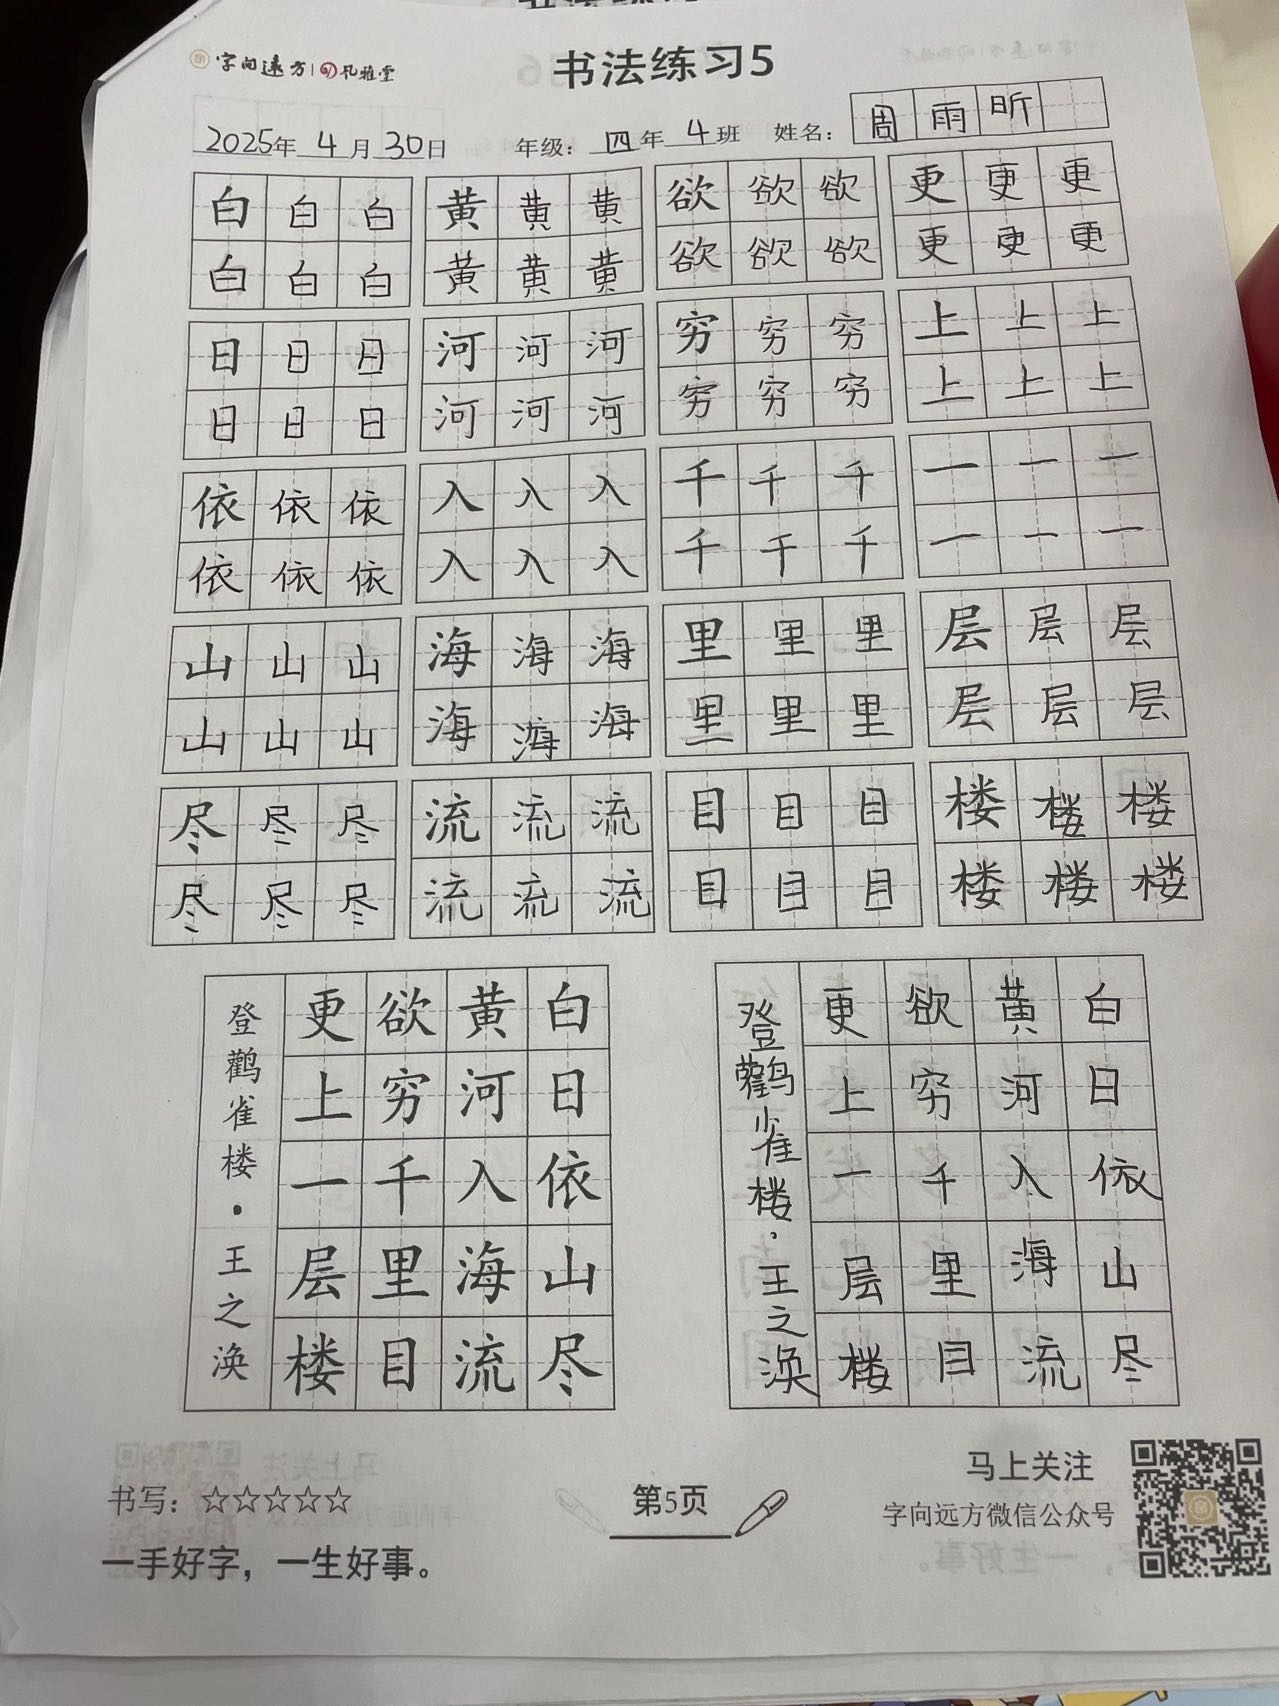 字向远方 孔雅堂
书法练习5
2025年 4月30日 年级：四年 4班 姓名：周雨昕
白白白 黄黄黄 欲欲欲 更更更
白白白 黄黄黄 欲欲欲 更更更
日日日 河河河 穷穷穷 上上上
日日日 河河河 穷穷穷 上上上
依依依 入入入 千千千 一一一
依依依 入入入 千千千 一一一
山山山 海海海 里里里 层层层
山山山 海海海 里里里 层层层
尽尽尽 流流流 目目目 楼楼楼
尽尽尽 流流流 目目目 楼楼楼
白日依山尽
黄河入海流
欲穷千里目
更上一层楼
登鹳雀楼·王之涣
白日依山尽
黄河入海流
欲穷千里目
更上一层楼
登鹳雀楼·王之涣
书写：☆☆☆☆☆
一手好字，一生好事。
第5页
马上关注
字向远方微信公众号